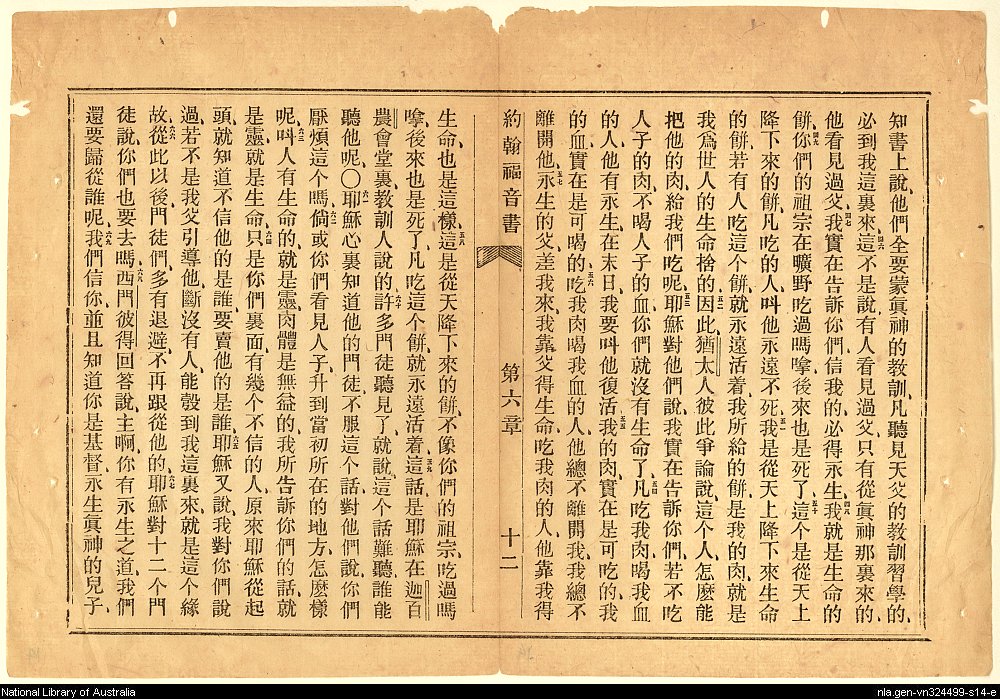 知書上說他們全要蒙眞神的教訓凡聽見天父的教訓習學的
必到我這裏來四六這不是說有人看見過父只有從眞神那裏來的
他看見過父四七我實在告訴你們信我的必得永生四八我就是生命的
餅四九你們的祖宗在曠野吃過嗎嗱後來也是死了五十這个是從天上
降下來的餅凡吃的人叫他永遠不死五一我是從天上降下來生命
的餅若有人吃這个餅就永遠活着我所給的餅是我的肉就是
我爲世人的生命捨的五二因此猶太人彼此爭論說這个人怎麽能
把他的肉給我們吃呢五三耶穌對他們說我實在告訴你們若不吃
人子的肉不喝人子的血你們就沒有生命了五四凡吃我肉喝我血
的人他有永生在末日我要叫他復活五五我的肉實在是可吃的我
的血實在是可喝的五六吃我肉喝我血的人他總不離開我我總不
離開他五七永生的父差我來我靠父得生命吃我肉的人他靠我得
約翰福音書 第六章 十二
生命也是這樣五八這是從天降下來的餅不像你們的祖宗吃過嗎
嗱後來也是死了凡吃這个餅就永遠活着五九這話是耶穌在迦百
農會堂裏教訓人說的六十許多門徒聽見了就說這个話難聽誰能
聽他呢〇六一耶穌心裏知道他的門徒不服這个話對他們說你們
厭煩這个嗎六二倘或你們看見人子升到當初所在的地方怎麽樣
呢六三叫人有生命的就是靈肉體是無益的我所告訴你們的話就
是靈就是生命六四只是你們裏面有幾个不信的人原來耶穌從起
頭就知道不信他的是誰要賣他的是誰六五耶穌又說我對你們說
過若不是我父引導他斷沒有人能彀到我這裏來就是這个緣
故六六從此以後門徒們多有退避不再跟從他的六七耶穌對十二个門
徒說你們也要去嗎六八西門彼得回答說主啊你有永生之道我們
還要歸從誰呢六九我們信你並且知道你是基督永生眞神的兒子
National Library of Australia
nla.gen-vn324499-s14-e